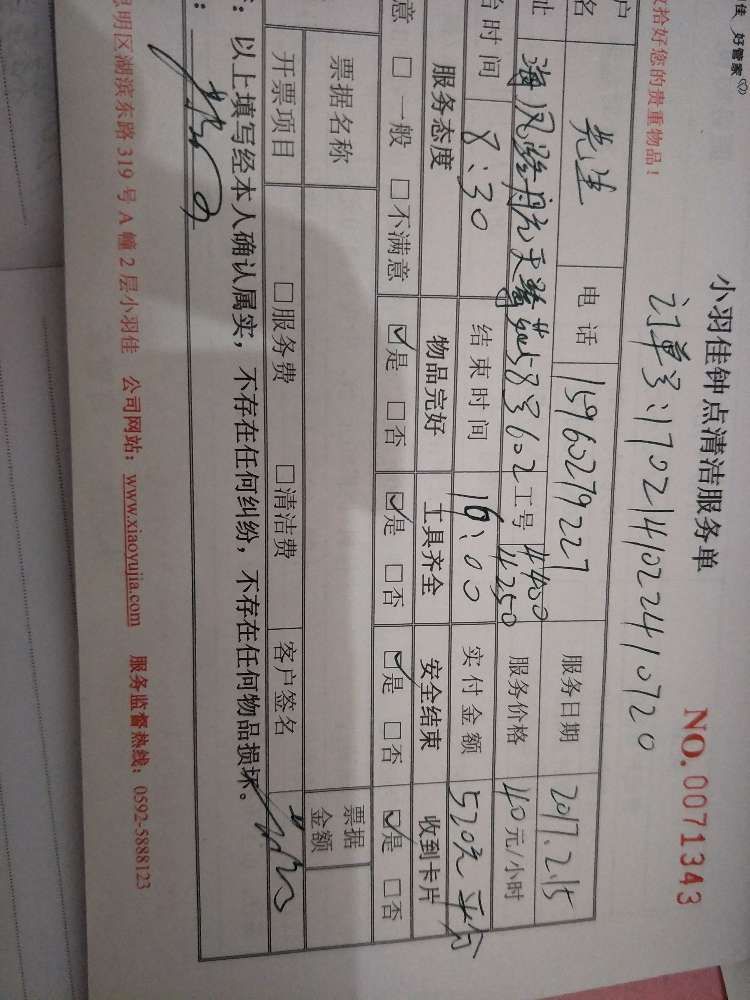 佳 好管家
收拾好您的贵重物品！
小羽佳钟点清洁服务单
NO.0071343
订单号:1702141022410720
户名 先生 电话 15960279227 服务日期 2017.2.15
址 海风路 602 工号 4400 4250 服务价格 40元/小时
台时间 8:30 结束时间 16:00 实付金额 520元 平台
服务态度 物品完好 工具齐全 安全结束 收到卡片
意 □一般 □不满意 ☑是 □否 ☑是 □否 ☑是 □否 ☑是 □否
票据名称 票据金额
开票项目 □服务费 □清洁费 客户签名
：以上填写经本人确认属实，不存在任何纠纷，不存在任何物品损坏。
：
思明区湖滨东路 319 号 A 幢 2 层小羽佳 公司网站：www.xiaoyujia.com 服务监督热线：0592-5888123